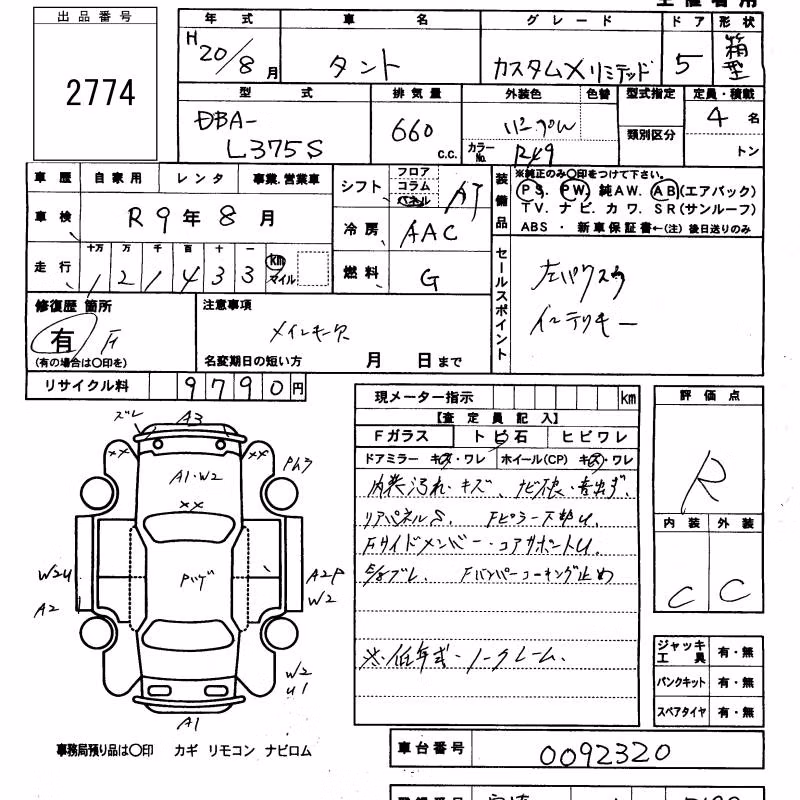 出品番号
2774
年式
H20/8月
車名
タント
グレード
カスタムXリミテッド
ドア
5
形状
箱型
型式
DBA-
L375S
排気量
660
c.c.
外装色
パープル
色替
カラーNo.
型式指定
類別区分
定員・積載
4名
トン
車歴
自家用
レンタ
事業.営業車
車検
R9年8月
走行
十万 万 千 百 十 一
121433
km
マイル
シフト
フロア
コラム
パネル
AT
冷房
AAC
燃料
G
装備品
※純正のみ○印をつけて下さい。
PS. PW. 純AW. AB(エアバック)
TV. ナビ. カワ. SR(サンルーフ)
ABS ・ 新車保証書←(注) 後日送りのみ
セールスポイント
左パワスラ
インテリキー
修復歴 箇所
有 F
(有の場合は○印を)
注意事項
メインキー欠
名変期日の短い方 月 日まで
リサイクル料
9790円
現メーター指示
km
【査定員記入】
Fガラス
トビ石
ヒビワレ
ドアミラー キズ・ワレ
ホイール(CP) キズ・ワレ
内装汚れ・キズ、ナビ不良・音出ず.
リアパネルS. Fピラー下部U.
Fサイドメンバー・コアサポートU.
Fバンパーコーキング止め
※.低年式・ノークレーム.
評価点
R
内装
外装
C
C
ジャッキ工具
有・無
パンクキット
有・無
スペアタイヤ
有・無
ズレ
A3
××
××
A1・W2
××
W2U
A2
A2P
W2
W2
U1
A1
事務局預り品は○印 カギ リモコン ナビロム
車台番号
0092320